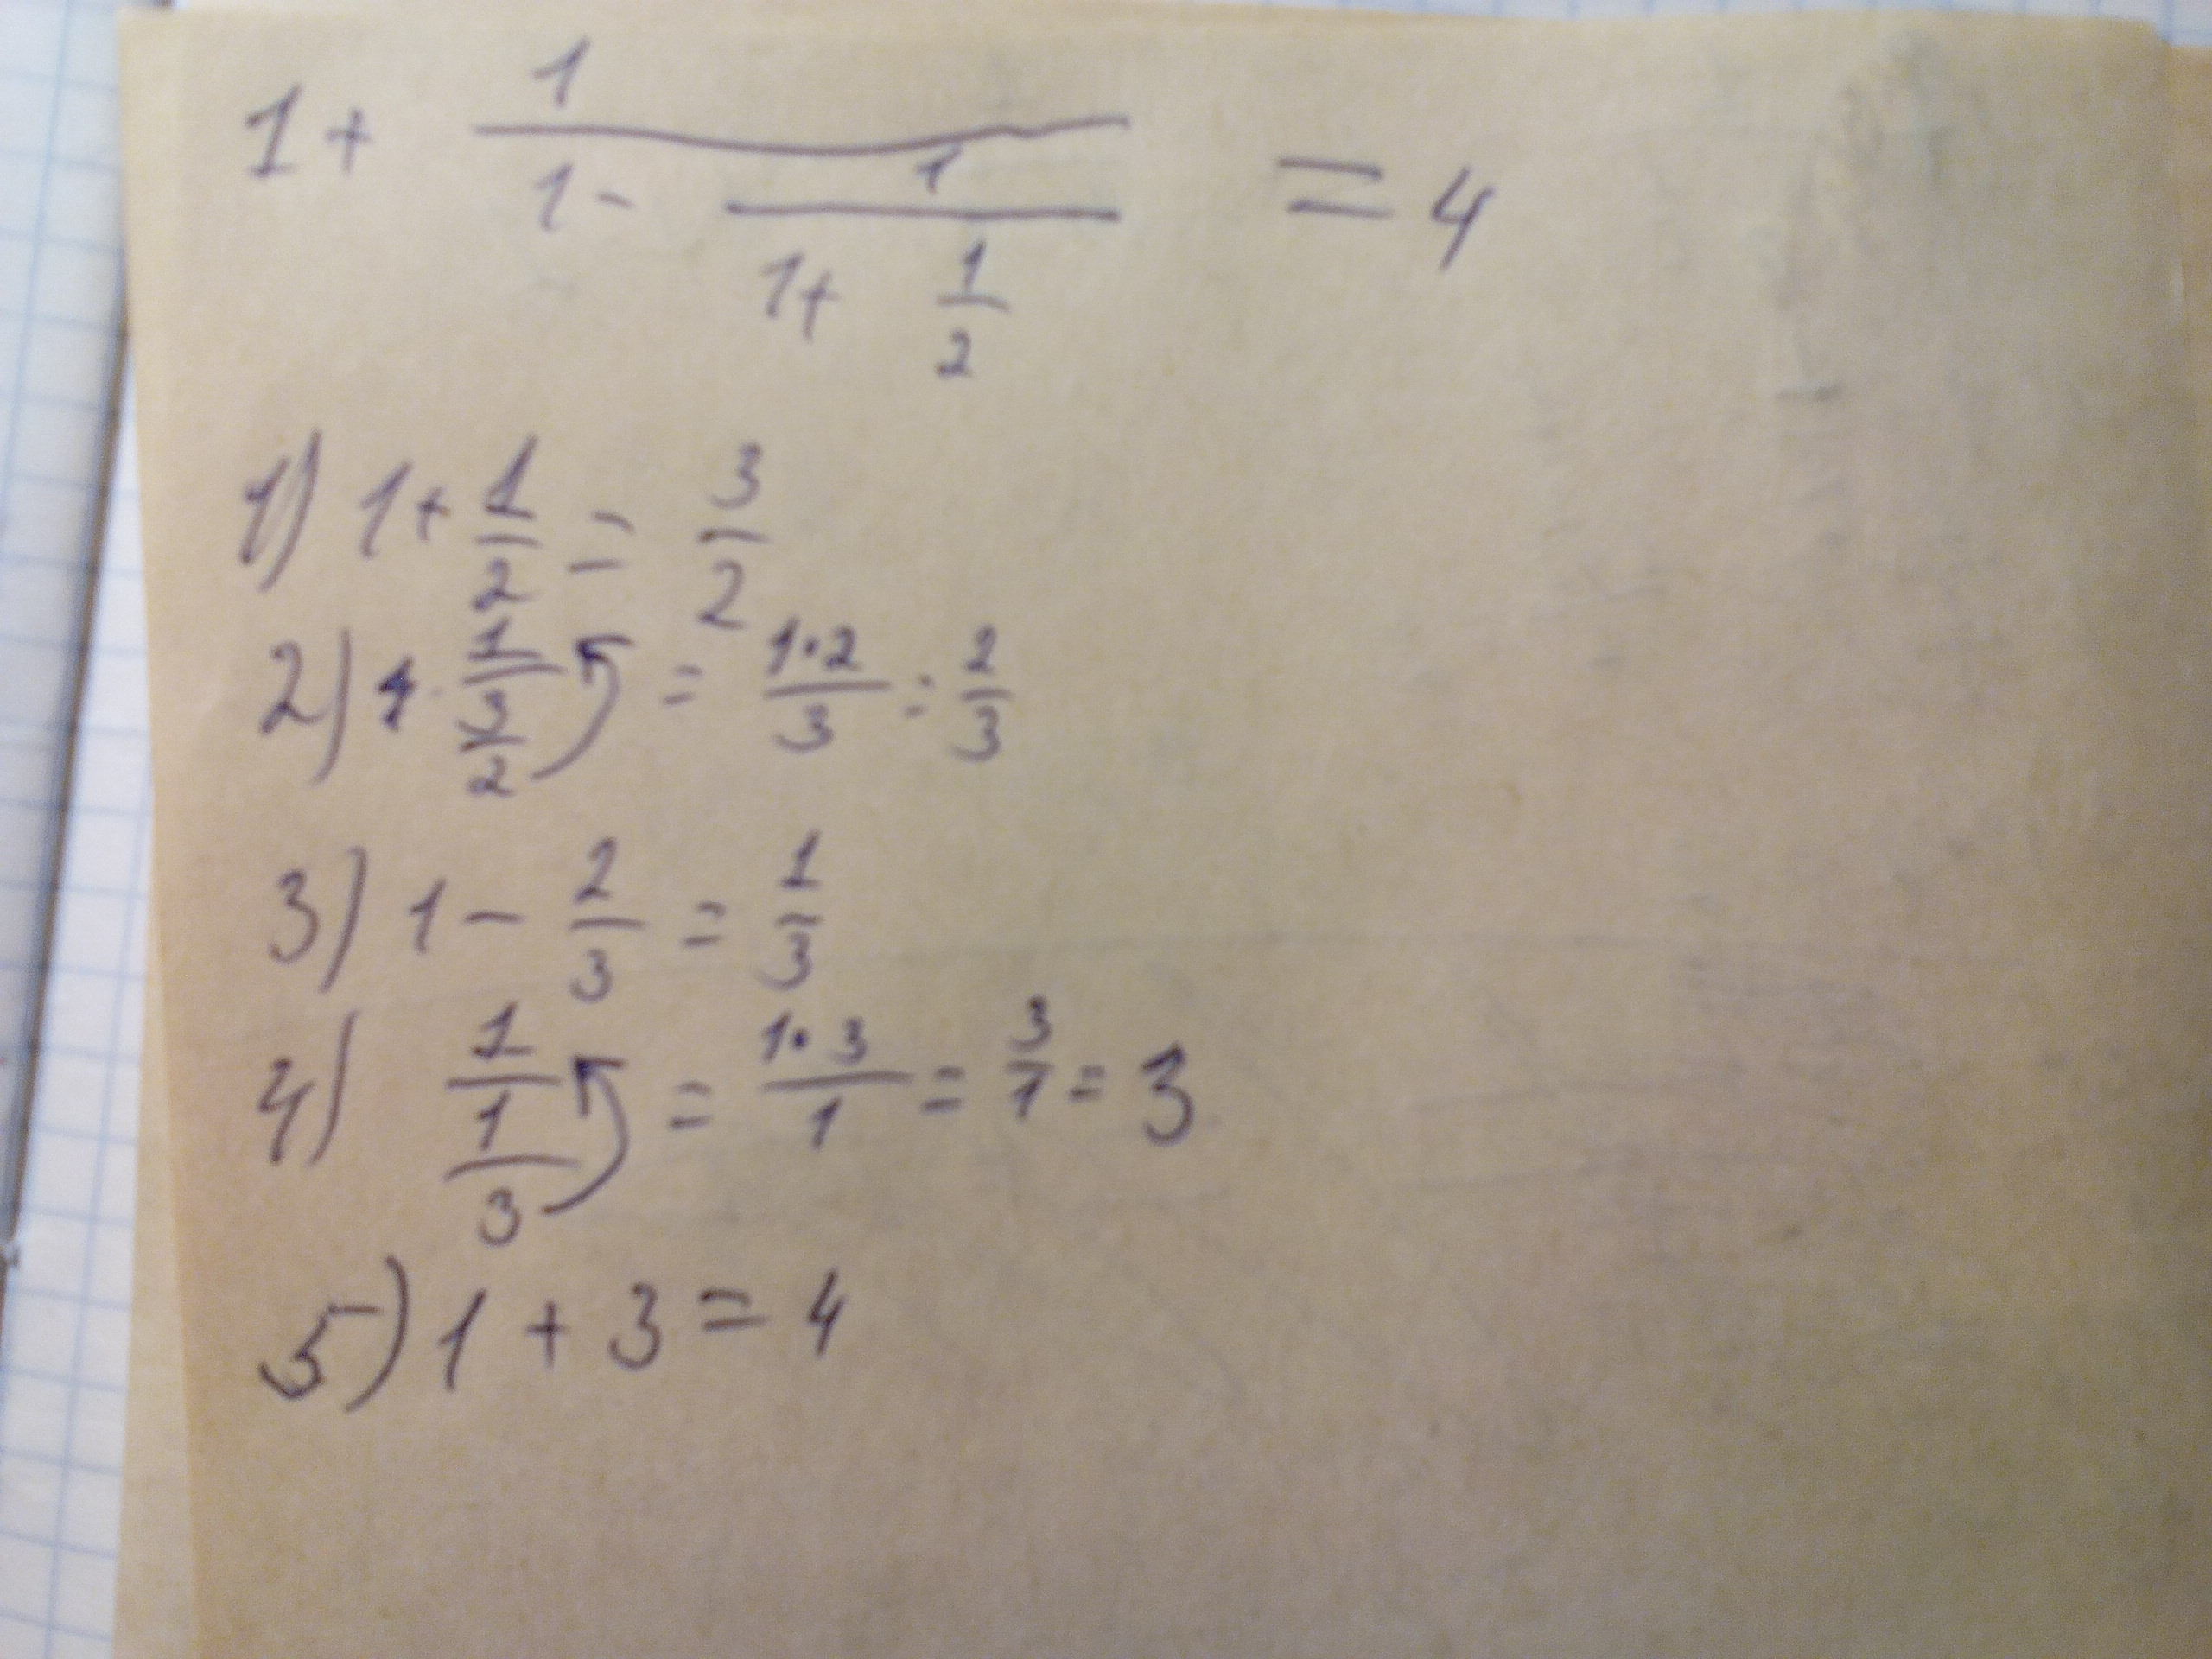 1 + 1/(1 - 1/(1 + 1/2)) = 4
1) 1 + 1/2 = 3/2
2) 1/(3/2) = 1·2/3 = 2/3
3) 1 - 2/3 = 1/3
4) 1/(1/3) = 1·3/1 = 3/1 = 3
5) 1 + 3 = 4